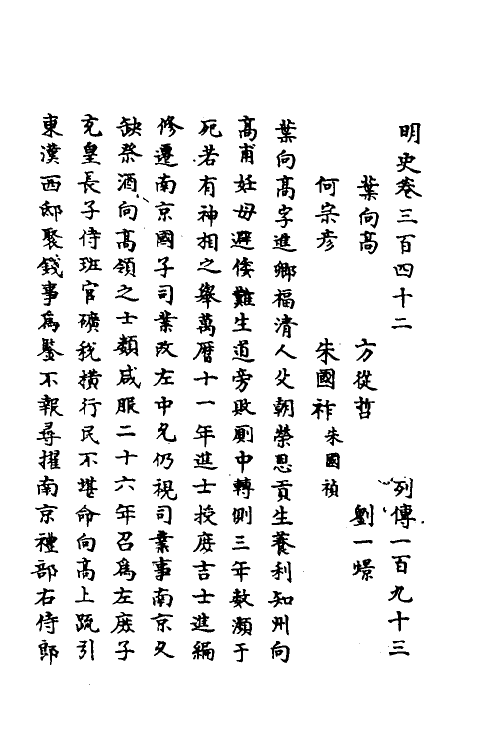 明史卷三百四十二 列傳一百九十三
葉向高 方從哲 劉一燝
何宗彥 朱國祚 朱國禎
葉向高字進卿福清人父朝榮恩貢生養利知州向
高甫妊母避倭難生道旁敗廁中轉側三年數瀕于
死若有神相之舉萬曆十一年進士授庶吉士進編
修遷南京國子司業改左中允仍視司業事南京久
缺祭酒向高領之士類咸服二十六年召爲左庶子
充皇長子侍班官礦稅橫行民不堪命向高上疏引
東漢西邸聚錢事爲鑒不報尋擢南京禮部右侍郎